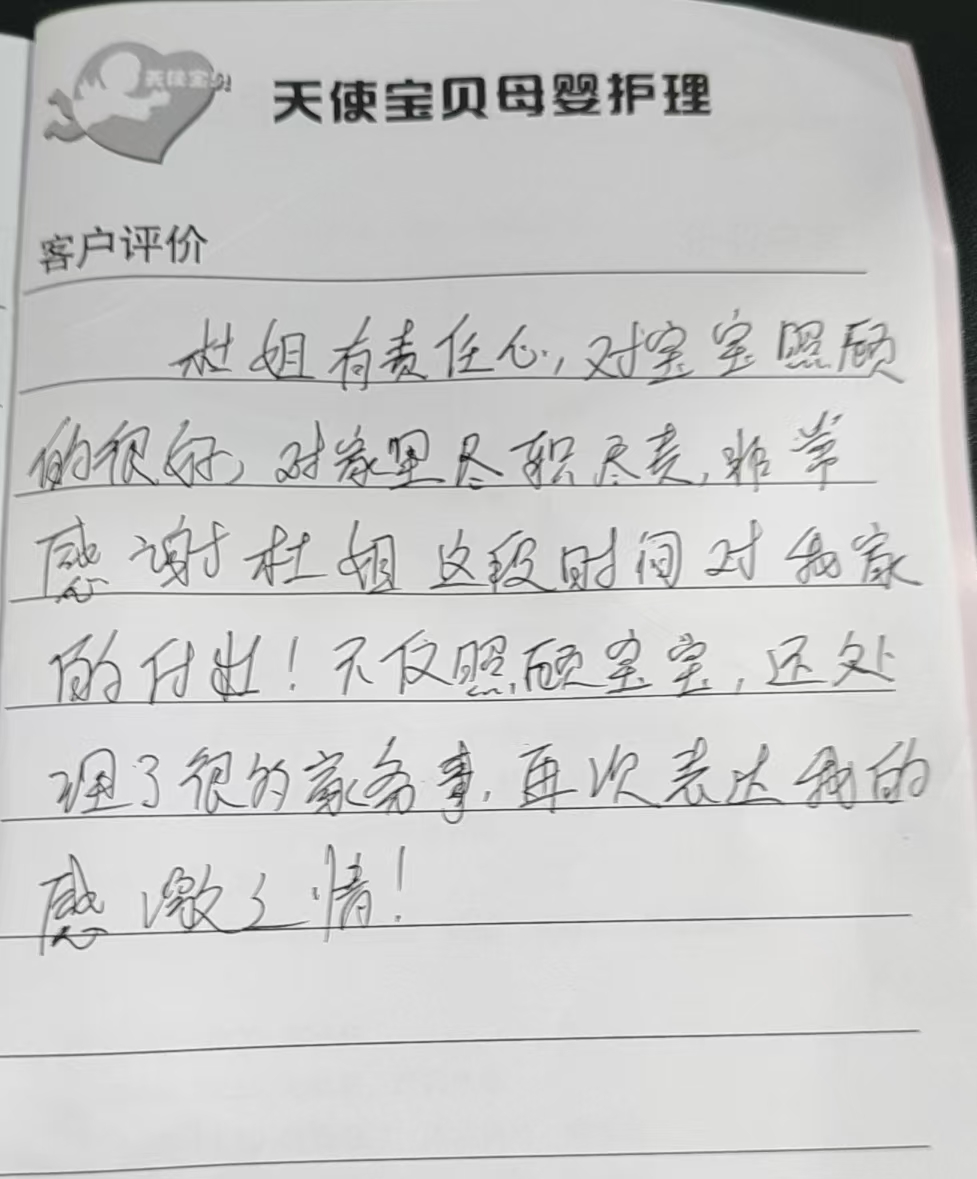 天使宝贝
天使宝贝母婴护理
客户评价
杜姐有责任心,对宝宝照顾
的很好,对家里尽职尽责,非常
感谢杜姐这段时间对我家
的付出!不仅照顾宝宝,还处
理了很的家务事,再次表达我的
感激之情!